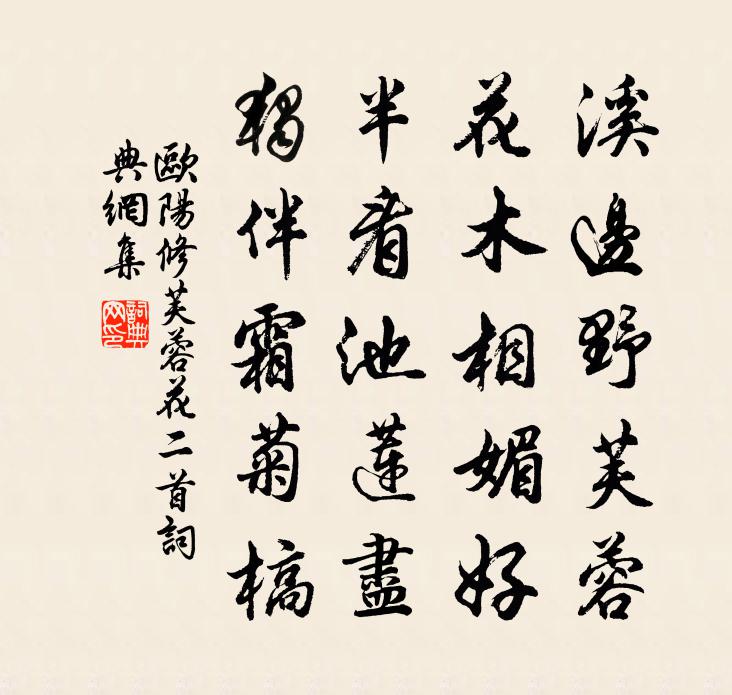 溪邊野芙蓉
花木相媚好
半看池蓮盡
獨伴霜菊槁
歐陽修芙蓉花二首詞
典網集
詞典
网印